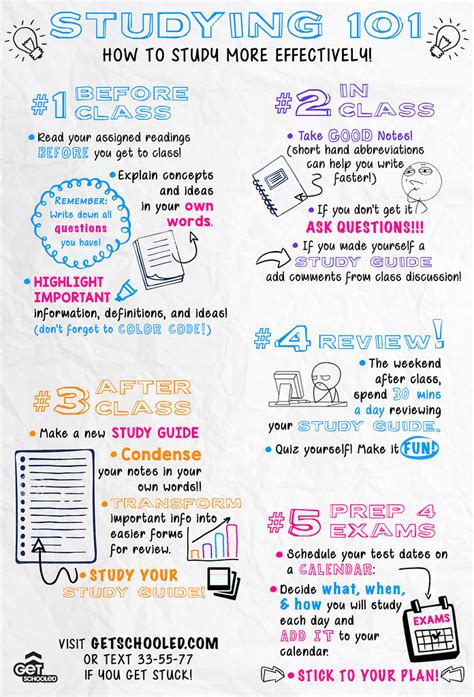 STUDYING 101
HOW TO STUDY MORE EFFECTIVELY!
#1 BEFORE
CLASS
• Read your assigned readings
BEFORE you get to class!
• Explain concepts
and ideas
in your own
words.
REMEMBER:
Write down all
questions
you have!
• HIGHLIGHT
IMPORTANT
information, definitions, and ideas!
(don't forget to COLOR CODE!)
#2 IN
CLASS
• Take GOOD Notes!
(short hand abbreviations
can help you write
faster!)
• If you don't get it
ASK QUESTIONS!!!
• If you made yourself a
STUDY GUIDE
add comments from class discussion!
#3 AFTER
CLASS
• Make a new STUDY GUIDE
• Condense
your notes in your
own words!!
• TRANSFORM
important info into
easier forms
for review.
• STUDY YOUR
STUDY GUIDE!
#4 REVIEW!
• The weekend
after class,
spend 30 mins
a day reviewing
your STUDY GUIDE.
• Quiz yourself! Make it FUN!
#5 PREP 4
EXAMS
• Schedule your test dates on
a CALENDAR:
• Decide what, when,
& how you will study
each day and
ADD IT to your
calendar.
EXAMS
• STICK TO YOUR PLAN!
GET
SCHOOLED
VISIT GETSCHOOLED.COM
OR TEXT 33-55-77
IF YOU GET STUCK!